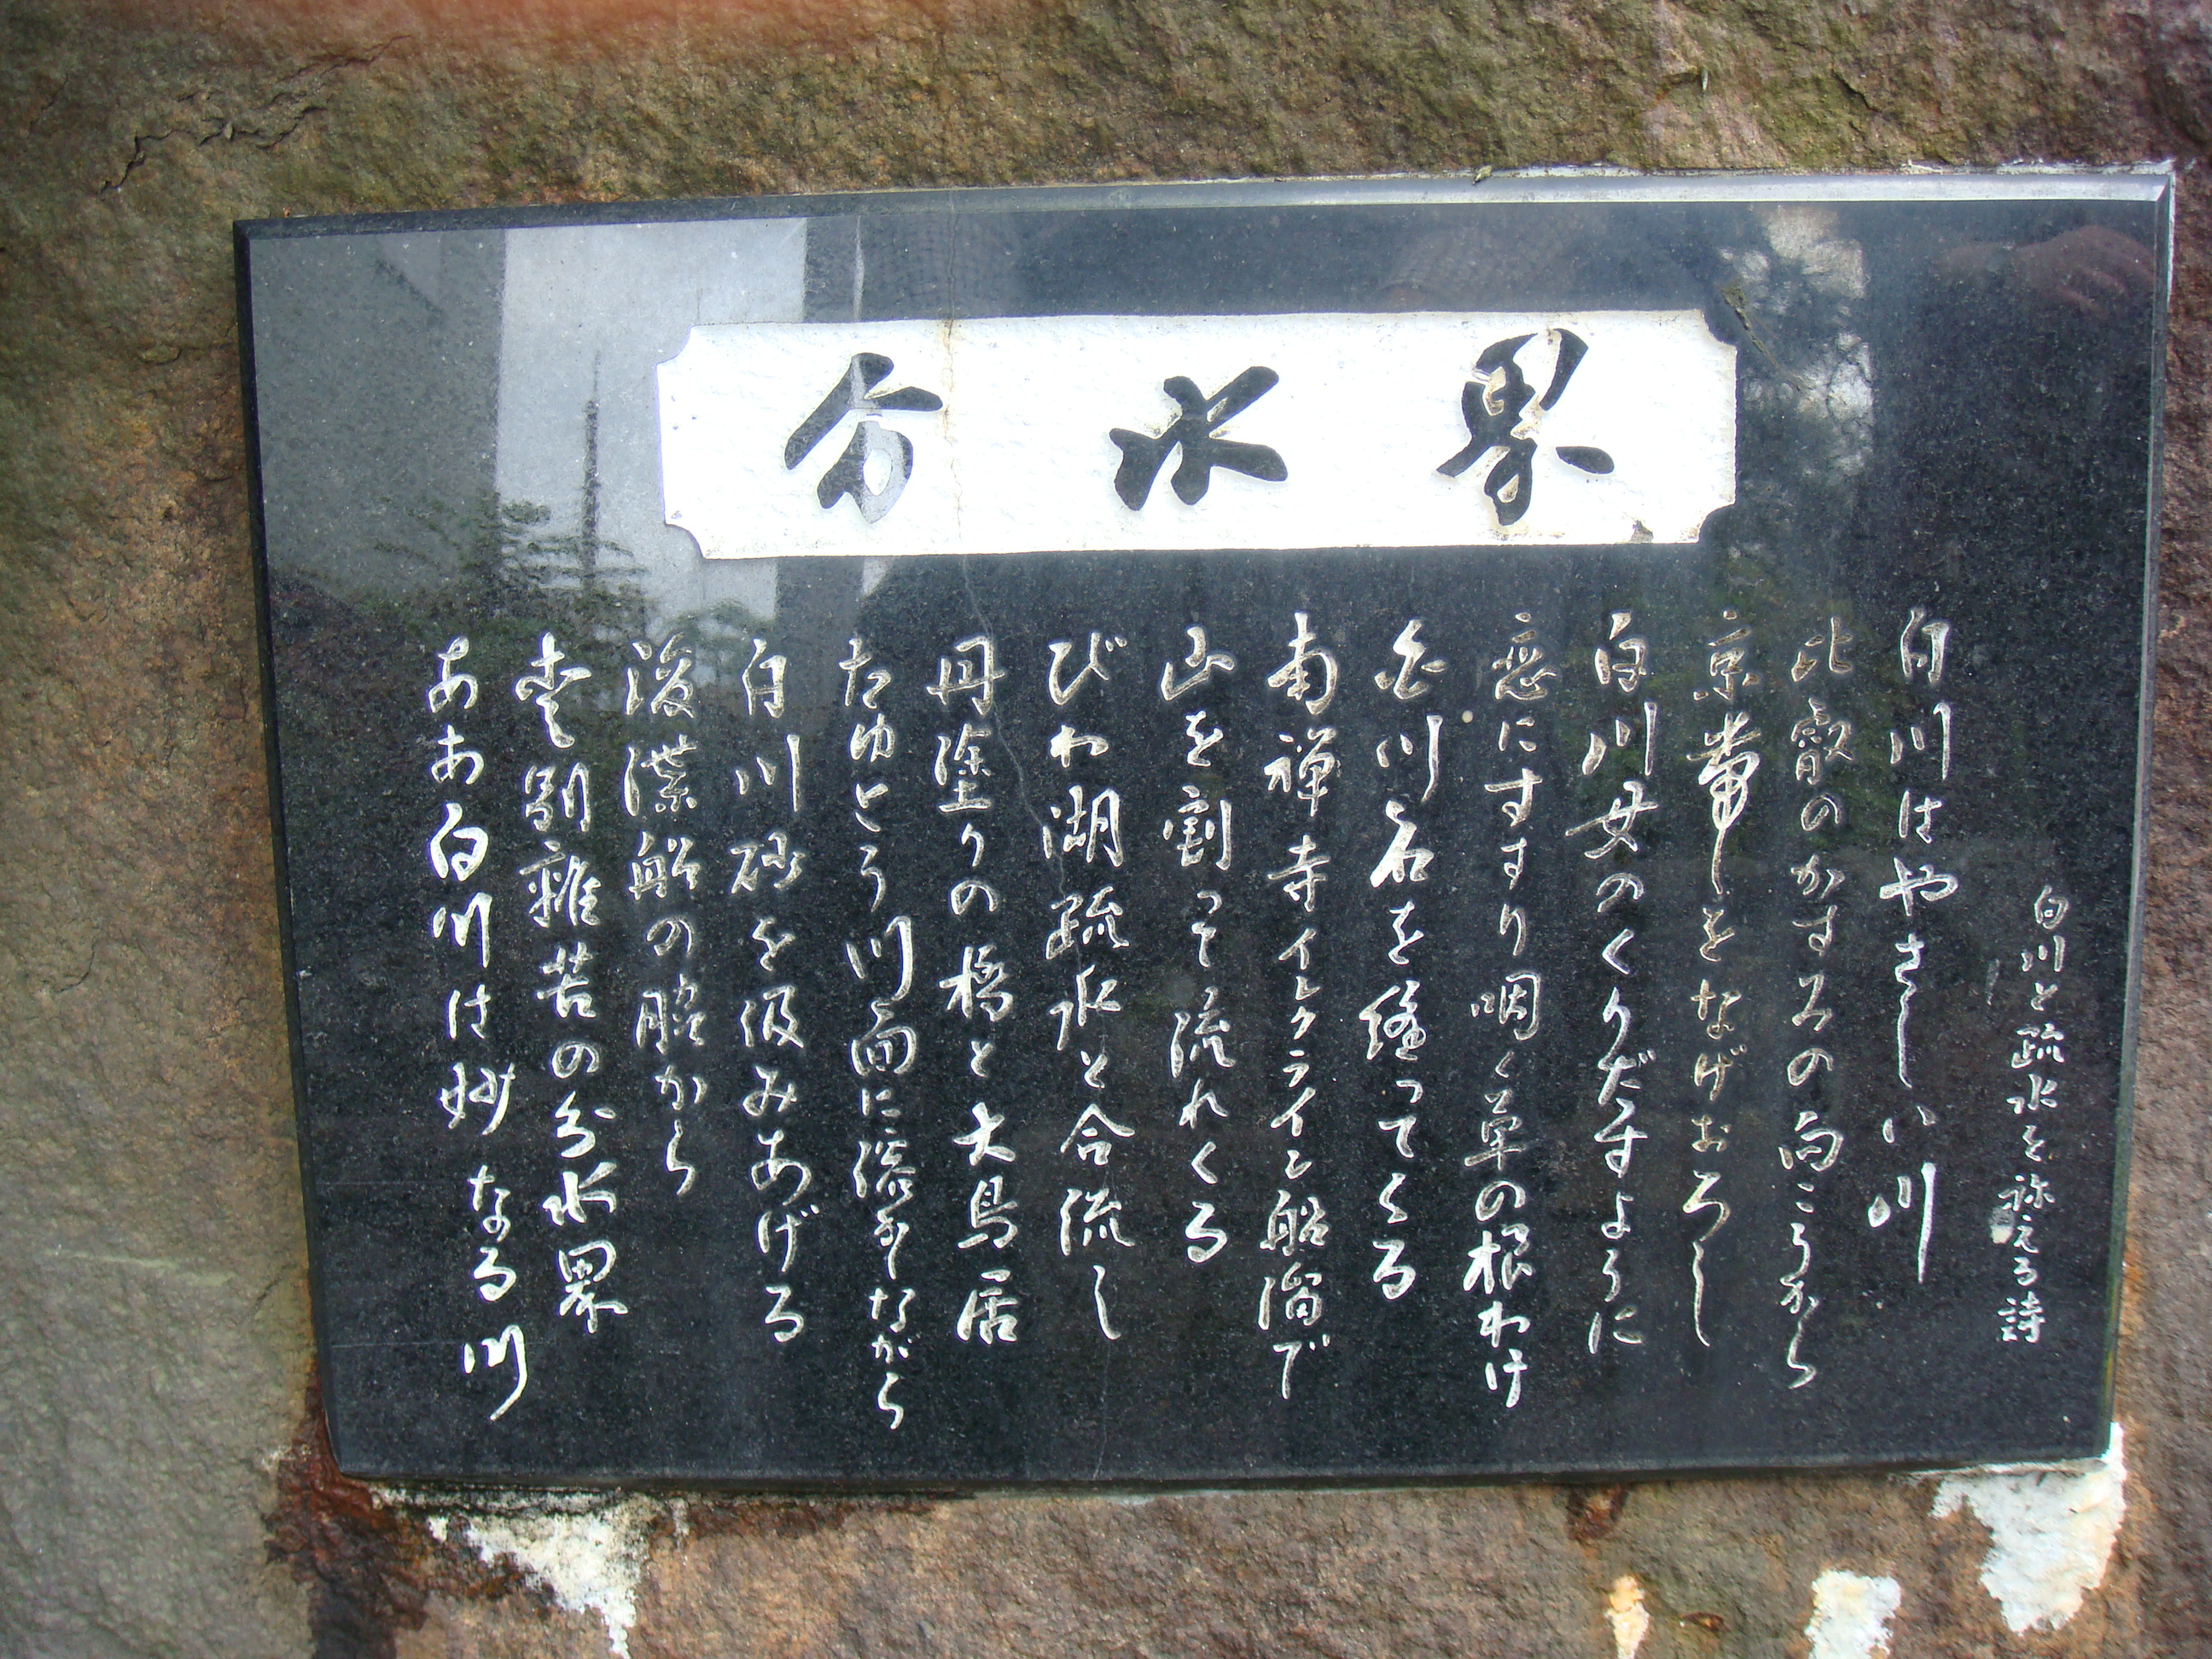 分水界
白川と疏水を称える詩
白川はやさしい川
比叡のかすみの向こうから
京帯をなげおろし
白川女のくりだすように
恋にすすり咽く草の根わけ
白川石を縫ってくる
南禅寺インクライン船溜で
山を割って流れくる
びわ湖疏水と合流し
丹塗りの橋と大鳥居
たゆとう川面に ながら
白川砂を汲みあげる
浚渫船の脇から
愛別離苦の分水界
ああ白川は妙なる川